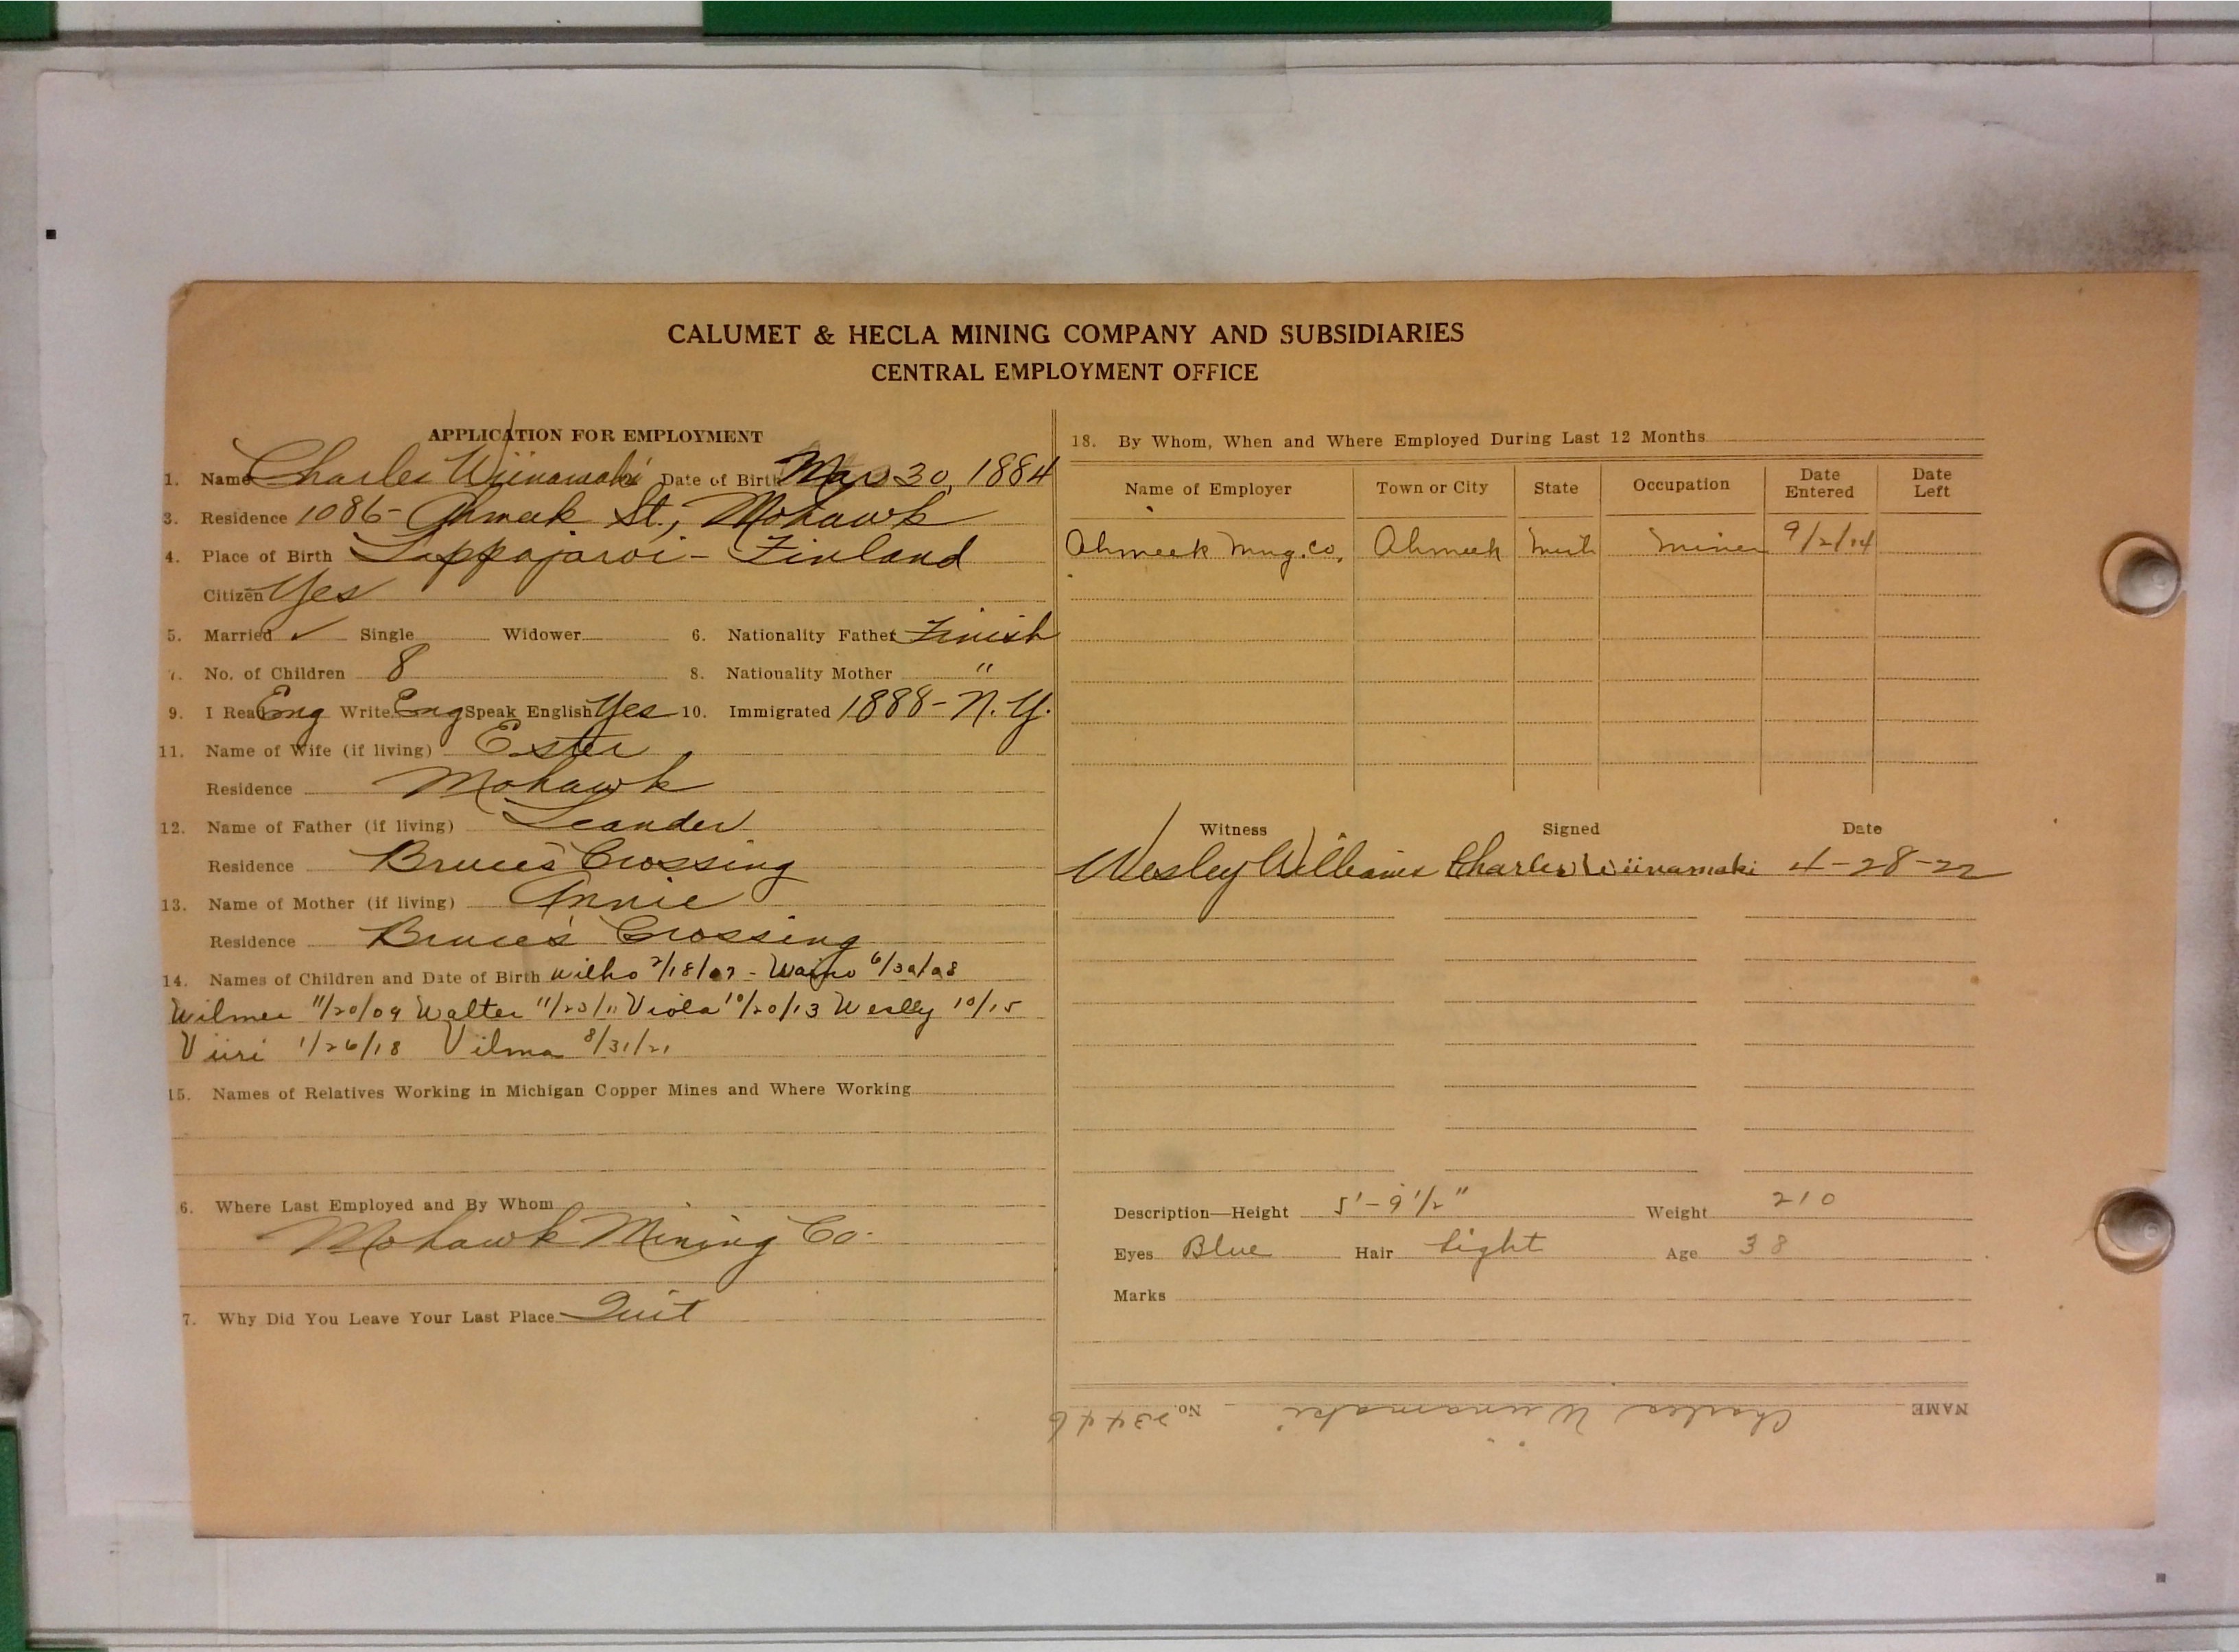 CALUMET & HECLA MINING COMPANY AND SUBSIDIARIES
CENTRAL EMPLOYMENT OFFICE
APPLICATION FOR EMPLOYMENT
1. Name Charles Wiinamaki Date of Birth Mar 30, 1884
3. Residence 1086- Ahmeek St., Mohawk
4. Place of Birth Lappajarvi - Finland
Citizen Yes
5. Married ✓ Single Widower 6. Nationality Father Finish
7. No. of Children 8 8. Nationality Mother "
9. I Read Eng Write Eng Speak English Yes 10. Immigrated 1888 - N.Y.
11. Name of Wife (if living) Ester
Residence Mohawk
12. Name of Father (if living) Leander
Residence Bruce's Crossing
13. Name of Mother (if living) Annie
Residence Bruce's Crossing
14. Names of Children and Date of Birth Wilho 2/18/07 - Waino 6/30/08
Wilmer 11/20/09 Walter 11/23/11 Viola 10/20/13 Weslly 10/15
Viiri 1/26/18 Vilma 8/31/21
15. Names of Relatives Working in Michigan Copper Mines and Where Working
6. Where Last Employed and By Whom
Mohawk Mining Co.
7. Why Did You Leave Your Last Place Quit
18. By Whom, When and Where Employed During Last 12 Months
Name of Employer Town or City State Occupation Date Entered Date Left
Ahmeek Mng. Co. Ahmeek Mich Miner 9/2/14
Witness Signed Date
Wesley Williams Charles Wiinamaki 4-28-22
Description—Height 5'-9 1/2" Weight 210
Eyes Blue Hair Light Age 38
Marks
NAME Charles Wiinamaki No. 23446